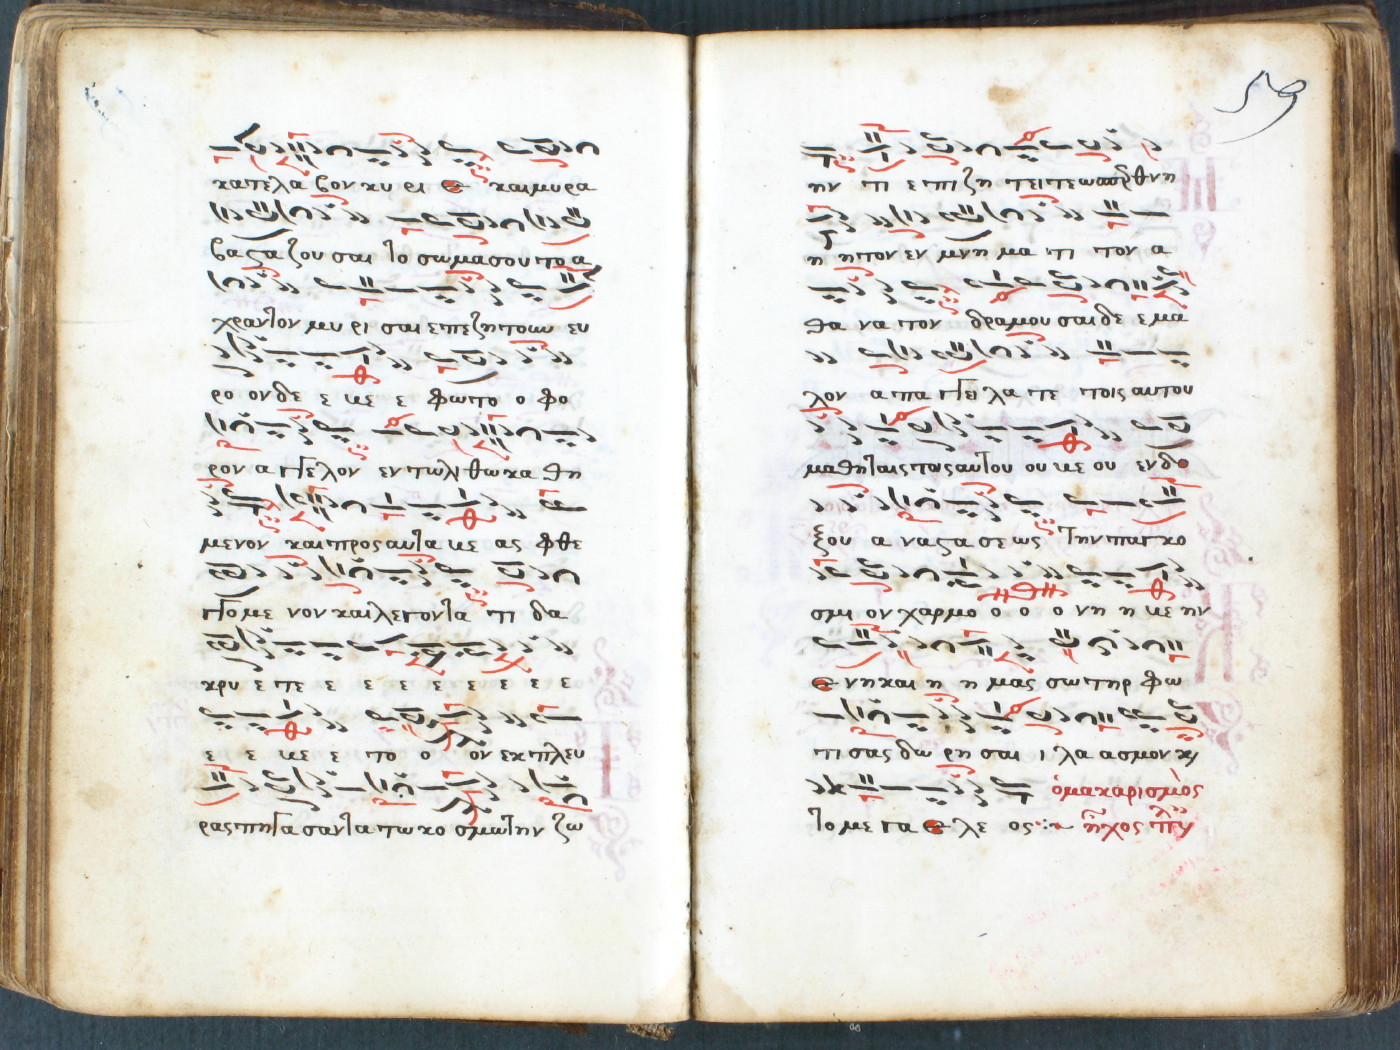 κατελαβον κυ ρι ε και μυρα
βαϛα ζου σαι το σωμα σου το α
χραντον μυ ρι σαι επεζητουν ευ
ρο ον δε ε με ε φωτο ο φο
ρον α γγελον εν τω λιθω κα θη
μενον και προς αυτα με ας φθε
γγομε νον και λεγοντα τι δα
κρυ ε τε ε ε ε ε ε ε ε
ε ε με ε το ο ον εκ πλευ
ρας πηγασαντα τω κο σμω την ζω
59
ην τι ε πι ζη τειτε ως θνη
η ητον εν μνη μα τι τον α
θα να τον δραμουσαι δε ε μα
λον α πα γγει λα τε τοις αυτου
μαθηταις τοις αυτου ου με ου ενδο
ξου α ναϛασεως την παγκο
σμι ον χαρμο ο ο ο νη η με ην
εν η και η η μας σωτηρ φω
τι σας δω ρη σαι ι λα ασμον κ
το με γα ε λε ος ὁ μακαρισμὸς
ἦχος πλ